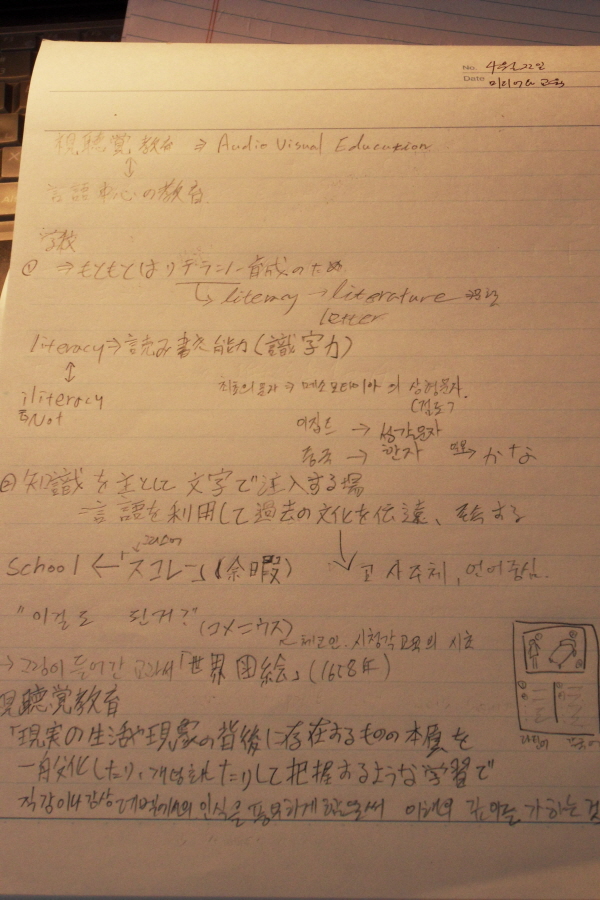 No. 4월 22일
Date 미디어 교육
視聴覚教育 ⇒ Audio Visual Education
↕
言語中心の教育
学校
① ⇒ もともとはリテラシー育成のため
↳ literacy → literature
letter
literacy ⇒ 読み書き能力(識字力)
↕
iliteracy
Not
최초의 문자 → 메소포타미아 의 상형문자.
이집트 → 상형문자
중국 → 한자 → かな
② 知識を主として文字で注入する場
言語を利用して過去の文化を伝達、する
School ← 「スコレー」(余暇)
교사 주체, 언어중심.
"이길도 된거?" (コメニウス)
체코인. 시청각교육의 시초
→ 그림이 들어간 교과서 「世界図絵」(1658年)
視聴覚教育
「現実の生活や現象の背後に存在するものの本質を
一般化したり、したりして把握するような学習で
인식을 풍요하게 함으로써 이해의 깊이를 가하는 것